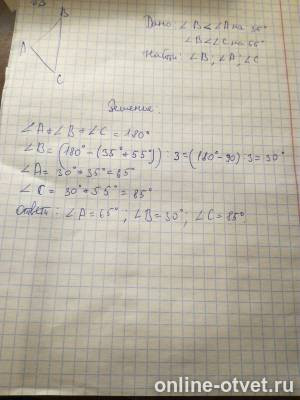 B
Дано: ∠B<∠A на 35°
∠B<∠C на 55°
A
Найти: ∠B; ∠A; ∠C
C
Решение
∠A+∠B+∠C=180°
∠B=(180°-(35°+55°)):3=(180°-90):3=30°
∠A=30°+35°=65
∠C=30°+55°=85°
Ответ: ∠A=65°; ∠B=30°; ∠C=85°
online-otvet.ru